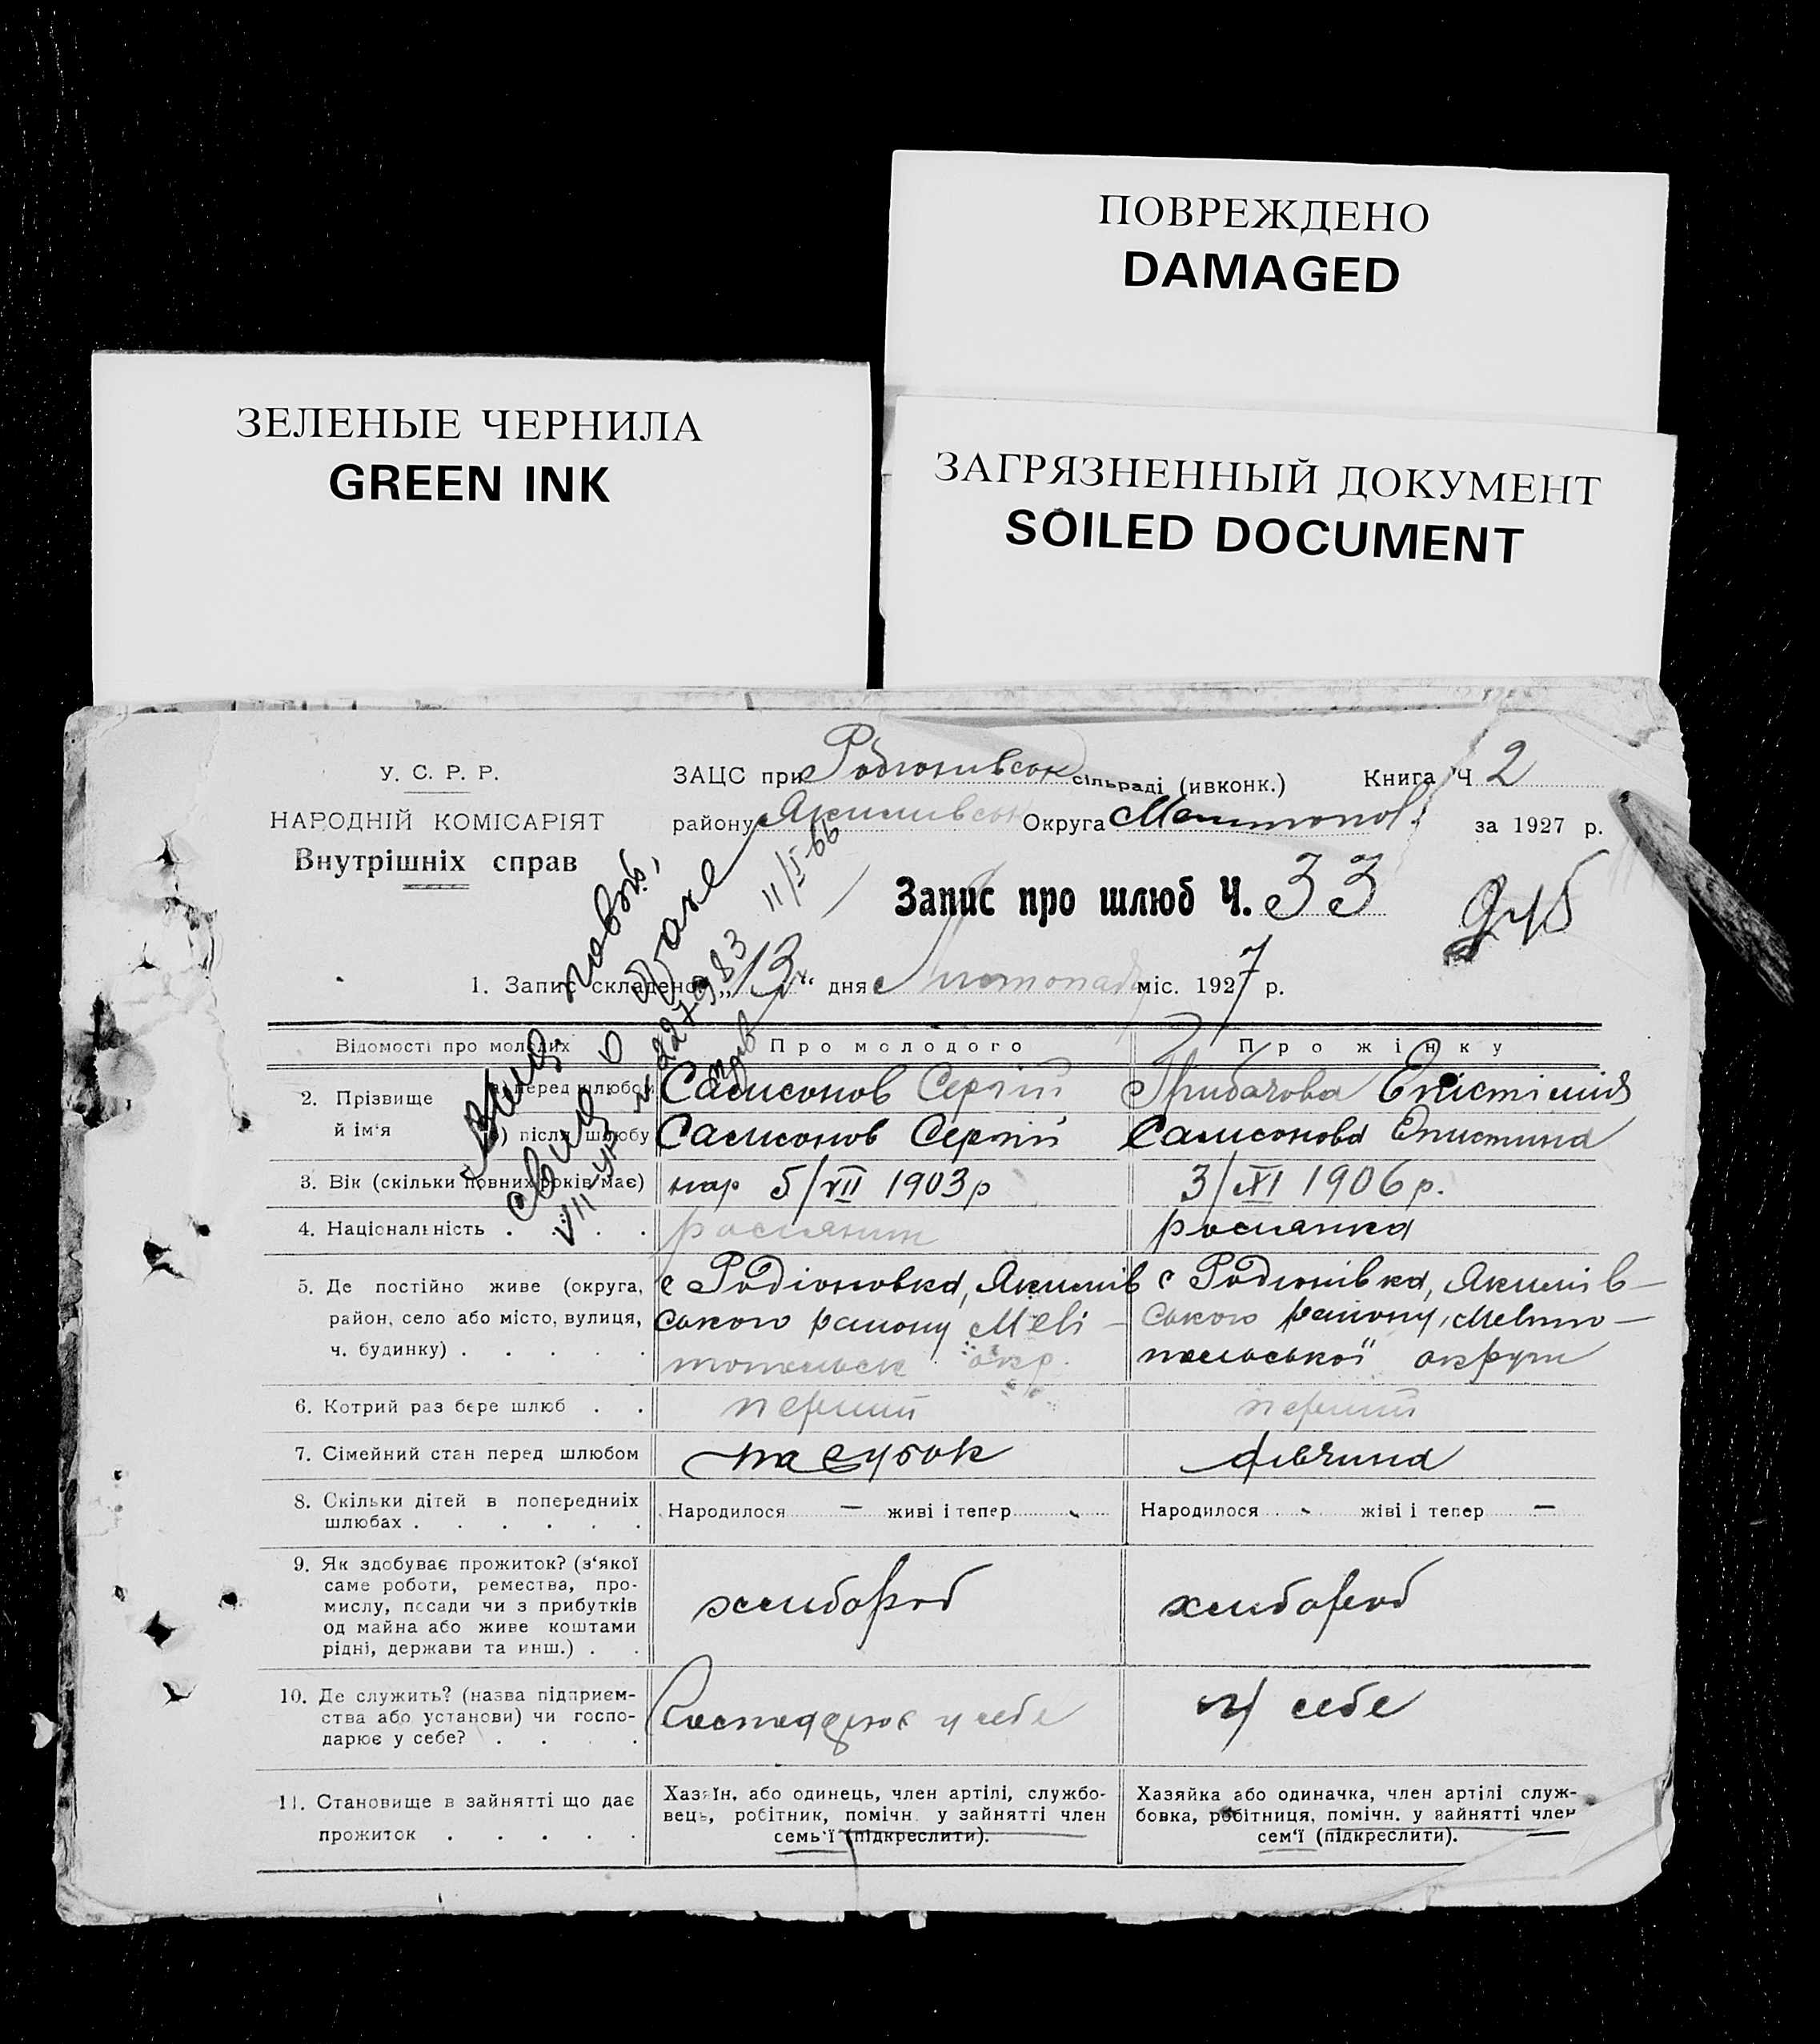 ПОВРЕЖДЕНО
DAMAGED
ЗЕЛЕНЫЕ ЧЕРНИЛА
GREEN INK
ЗАГРЯЗНЕННЫЙ ДОКУМЕНТ
SOILED DOCUMENT
У. С. Р. Р.
НАРОДНІЙ КОМІСАРІЯТ
Внутрішніх справ
ЗАЦС при Родионивськ сільраді (ивконк.) Книга Ч 2
району Якимивськ Округа Мелитопол. за 1927 р.
Запис про шлюб Ч. 33
1. Запис складено „13“ дня Листопада міс. 1927 р.
Выд повт,
свид о браке
VII УР № 227983
11/I-66
Відомості про молодих Про молодого Про жінку
2. Прізвище й ім‘я
а) перед шлюбом Самсонов Сергій Грибачова Епістімія
б) після шлюбу Самсонов Сергій Самсонова Епистима
3. Вік (скільки повних років має) нар 5/VII 1903р 3/XI 1906р.
4. Національність . . . . росіянин росиянка
5. Де постійно живе (округа, район, село або місто, вулиця, ч. будинку) . . . . .
с Родіоновка, Якимів
ського району Мелі-
топольск окр.
с Родионівка, Якимів-
ського району, Мелито-
польської округи
6. Котрий раз бере шлюб . . перший перший
7. Сімейний стан перед шлюбом парубок дівчина
8. Скільки дітей в попередніх шлюбах . . . . . .
Народилося — живі і тепер -
Народилося - жіві і тепер —
9. Як здобуває прожиток? (з‘якої
саме роботи, ремества, про-
мислу, посади чи з прибутків
од майна або живе коштами
рідні, держави та инш.) . .
хлибороб хлибороб
10. Де служить? (назва підприєм-
ства або установи) чи госпо-
дарює у себе? . . . .
Господарює у себе у себе
11. Становище в зайнятті що дає
прожиток . . . . .
Хазяїн, або одинець, член артілі, службо-
вець, робітник, помічн. у зайнятті член
семь‘ї (підкреслити).
Хазяйка або одиначка, член артілі служ-
бовка, робітниця, помічн. у зайнятті член
сем‘ї (підкреслити).